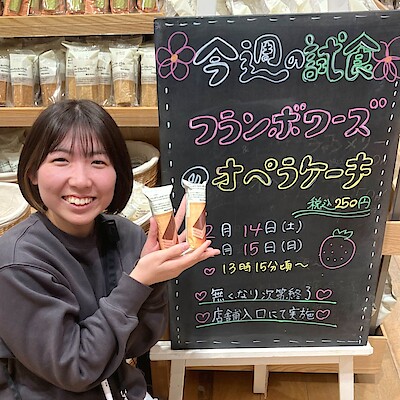 今週の試食
フランボワーズ
のオペラケーキ
税込250円
2月14日(土)
月15日(日)
13時15分頃〜
無くなり次第終了
店舗入口にて実施